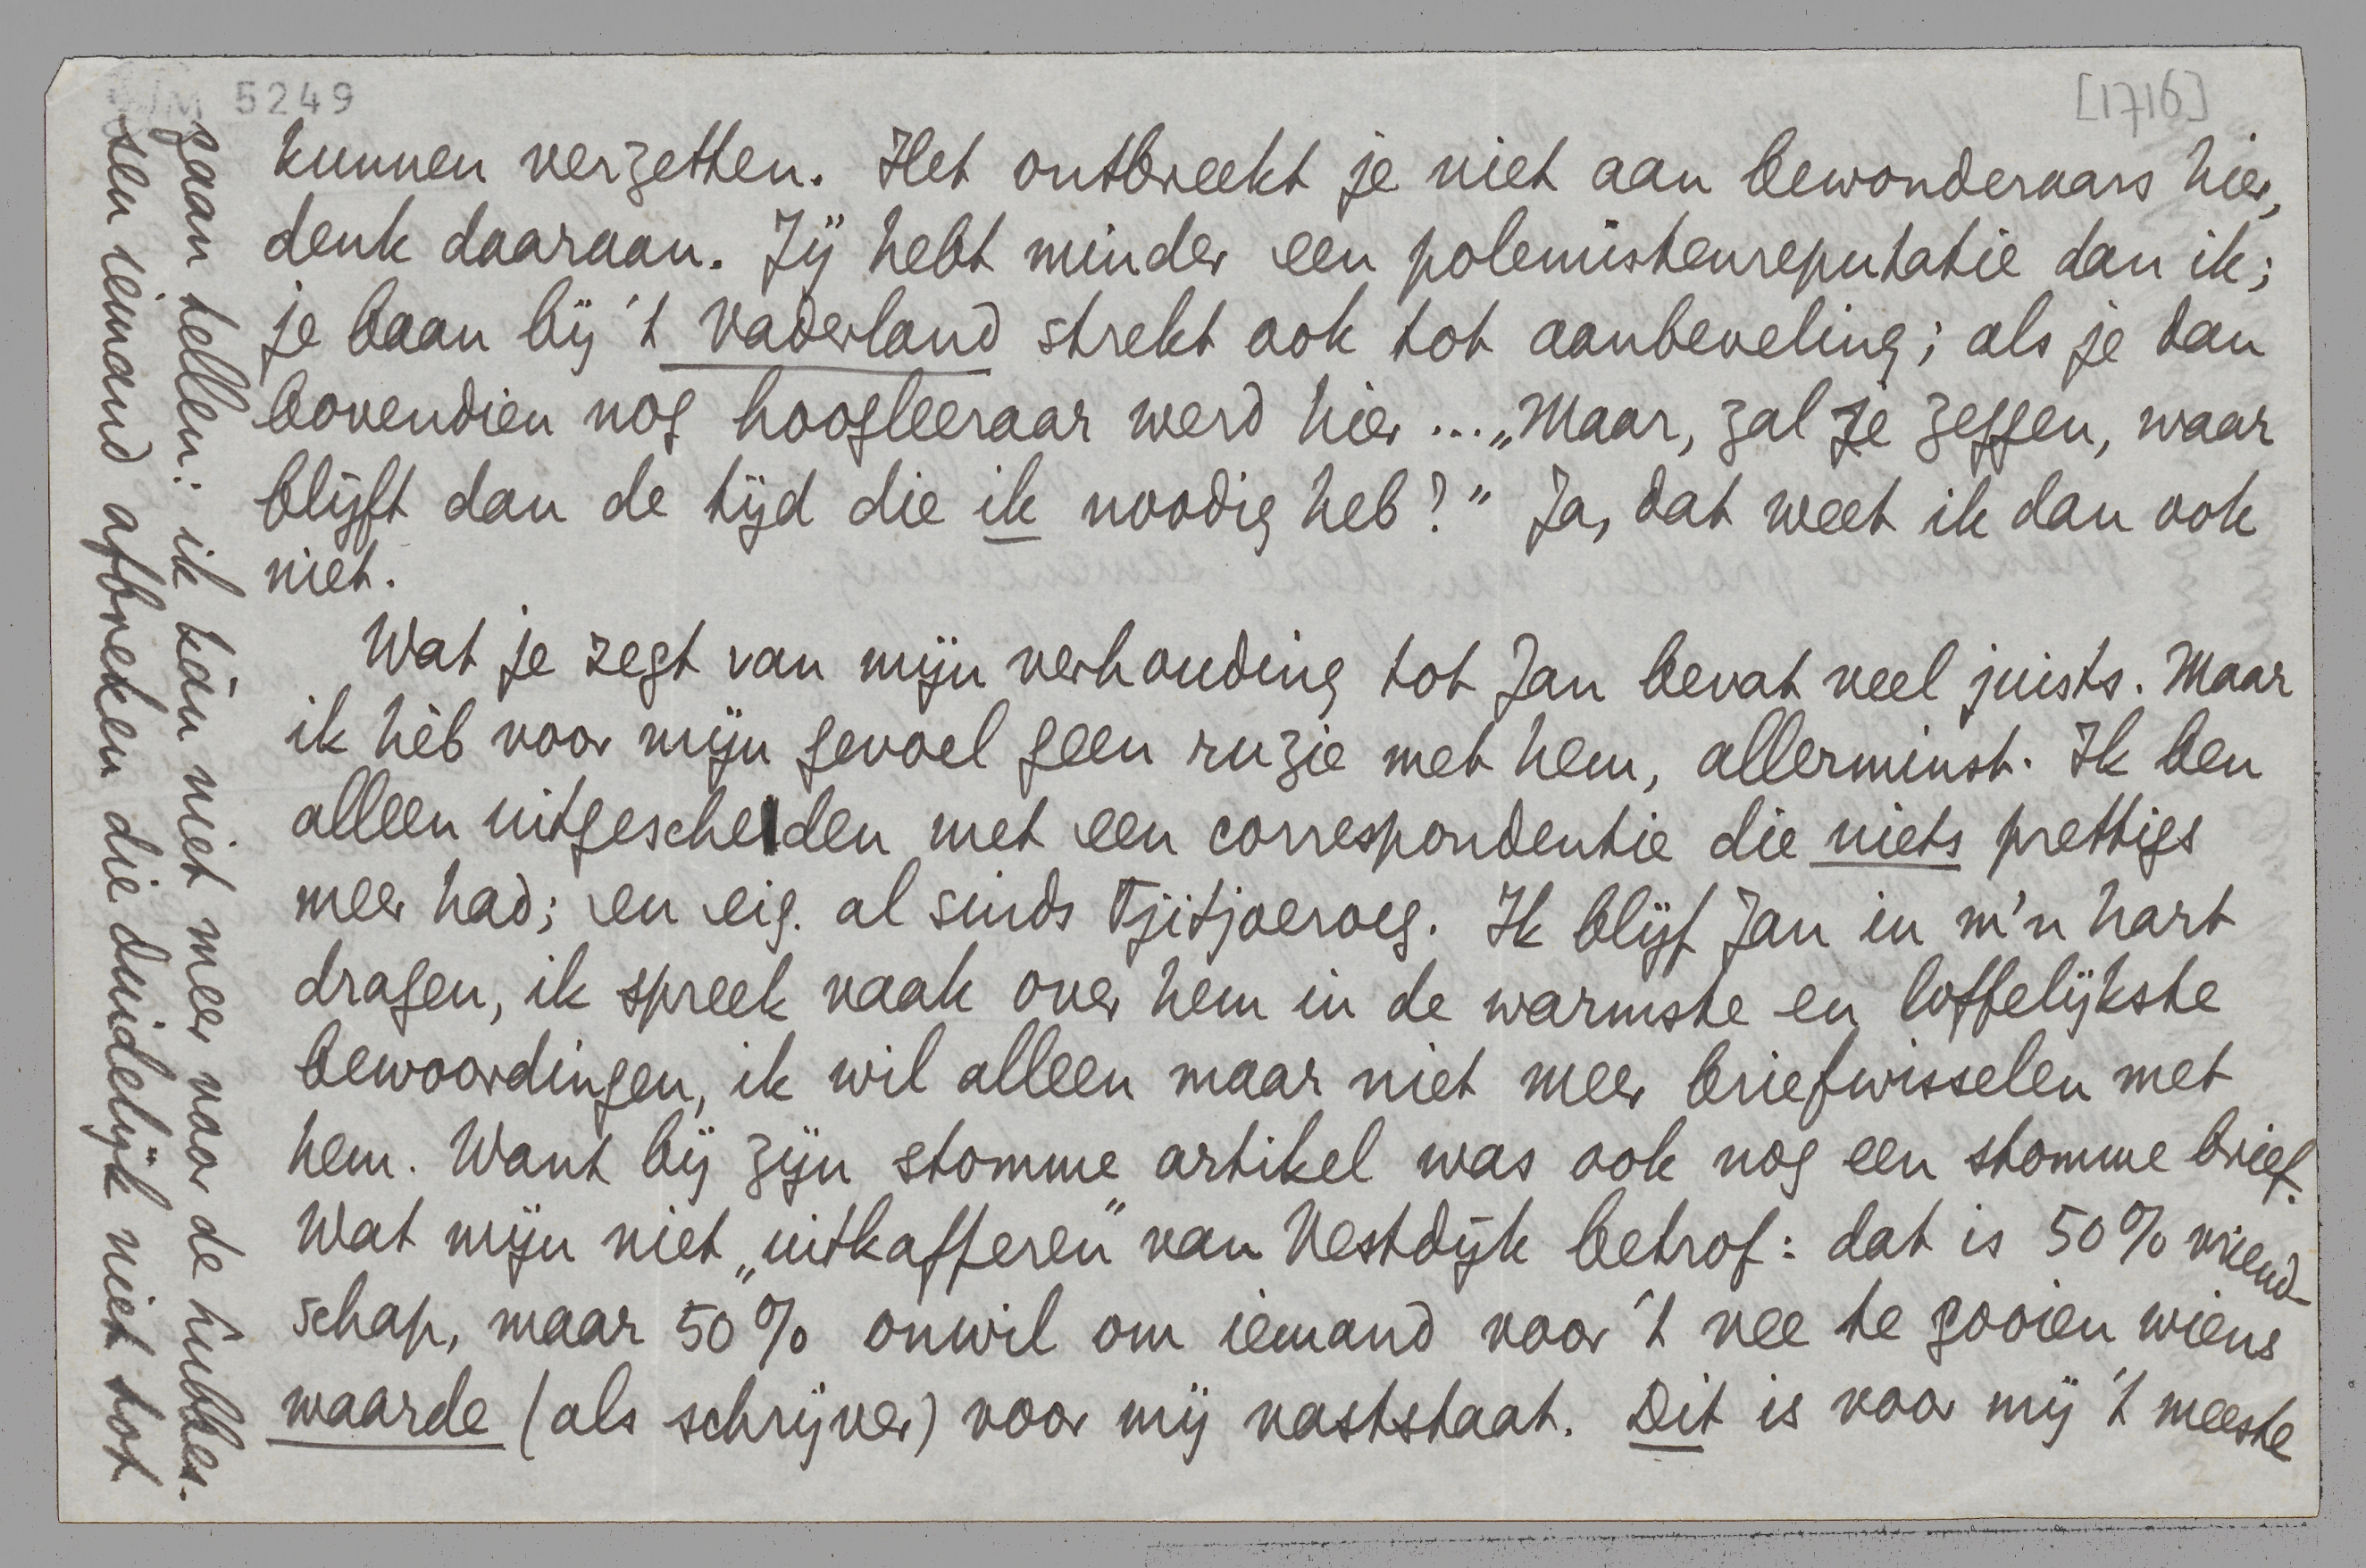 5249
[1716]
kunnen verzetten. Het ontbreekt je niet aan bewonderaars hier,
denk daaraan. Jij hebt minder een polemistenreputatie dan ik;
je baan bij 't Vaderland strekt ook tot aanbeveling; als je dan
bovendien nog hoogleeraar werd hier... „Maar, zal je zeggen, waar
blijft dan de tijd die ik noodig heb?” Ja, dat weet ik dan ook
niet.
Wat je zegt van mijn verhouding tot Jan bevat veel juists. Maar
ik hèb voor mijn gevoel geen ruzie met hem, allerminst. Ik ben
alleen uitgescheiden met een correspondentie die niets prettigs
meer had; en eig. al sinds Tjitjoeroeg. Ik blijf Jan in m'n hart
dragen, ik spreek vaak over hem in de warmste en loffelijkste
bewoordingen, ik wil alleen maar niet meer briefwisselen met
hem. Want bij zijn stomme artikel was ook nog een stomme brief.
Wat mijn niet „uitkafferen” van Vestdijk betrof: dat is 50% vriend-
schap, maar 50% onwil om iemand voor 't vee te gooien wiens
waarde (als schrijver) voor mij vaststaat. Dit is voor mij 't meeste
gaan tellen: ik kàn niet meer voor de hubbes-
sen iemand afbreken die duidelijk niet tot